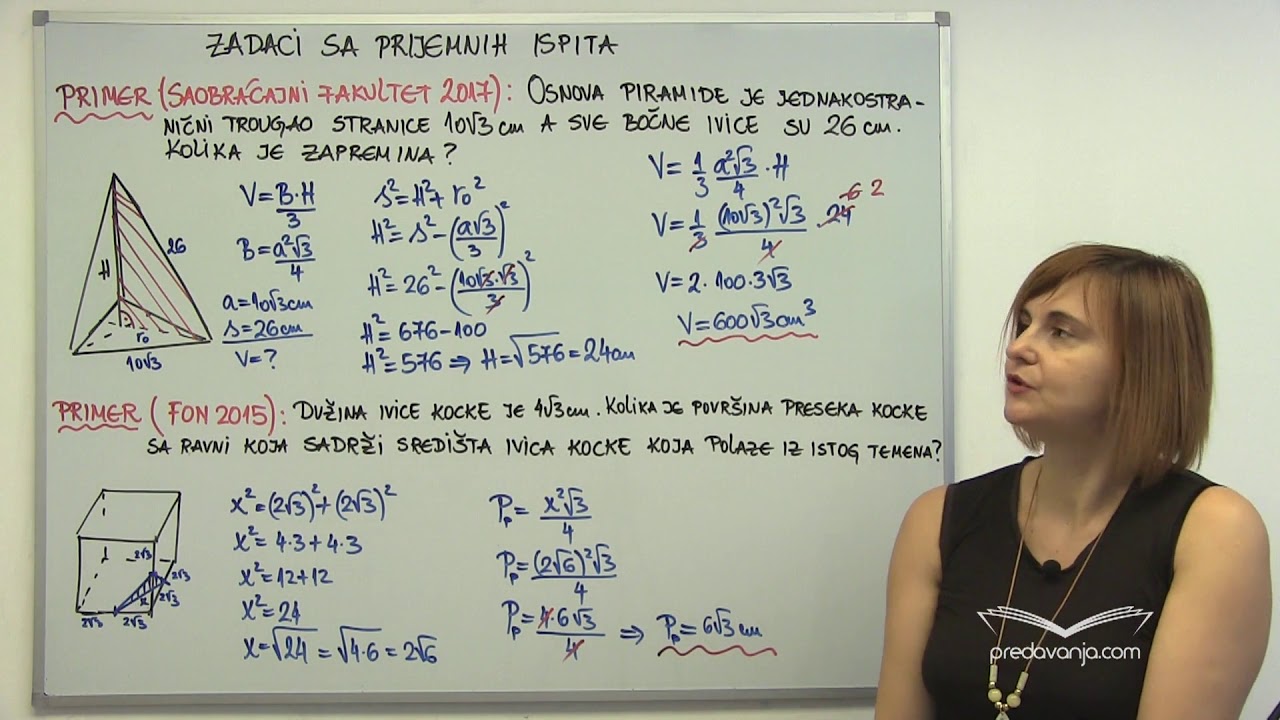 ZADACI SA PRIJEMNIH ISPITA
PRIMER (SAOBRAĆAJNI FAKULTET 2017): OSNOVA PIRAMIDE JE JEDNAKOSTRA-
NIČNI TROUGAO STRANICE 10√3 cm A SVE BOČNE IVICE SU 26 cm.
KOLIKA JE ZAPREMINA?
H
26
r₀
10√3
V = B·H/3
B = a²√3/4
a = 10√3 cm
s = 26 cm
V = ?
s² = H² + r₀²
H² = s² - (a√3/3)²
H² = 26² - (10√3·√3/3)²
H² = 676 - 100
H² = 576 ⇒ H = √576 = 24 cm
V = 1/3 a²√3/4 · H
V = 1/3 (10√3)²√3/4 · 24 6 2
V = 2·100·3√3
V = 600√3 cm³
PRIMER (FON 2015): DUŽINA IVICE KOCKE JE 4√3 cm. KOLIKA JE POVRŠINA PRESEKA KOCKE
SA RAVNI KOJA SADRŽI SREDIŠTA IVICA KOCKE KOJA POLAZE IZ ISTOG TEMENA?
2√3
2√3
x
2√3
2√3
2√3
x² = (2√3)² + (2√3)²
x² = 4·3 + 4·3
x² = 12 + 12
x² = 24
x = √24 = √4·6 = 2√6
Pₚ = x²√3/4
Pₚ = (2√6)²√3/4
Pₚ = 4·6√3/4 ⇒ Pₚ = 6√3 cm
predavanja.com